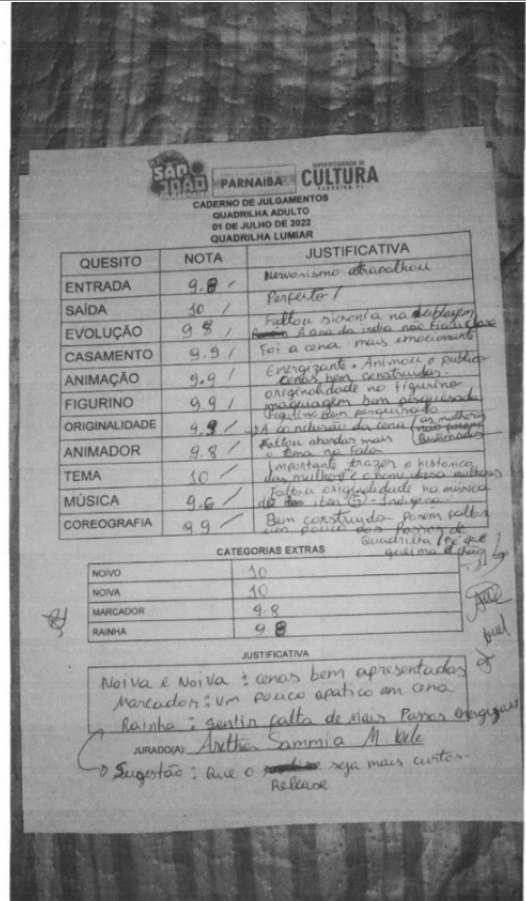 SÃO JOÃO
PARNAIBA
SUPERINTENDÊNCIA DE
CULTURA
PARNAÍBA-PI
CADERNO DE JULGAMENTOS
QUADRILHA ADULTO
01 DE JULHO DE 2022
QUADRILHA LUMIAR
QUESITO NOTA JUSTIFICATIVA
ENTRADA 9.8 / Nervosismo atrapalhou.
SAÍDA 10 / Perfeito!
EVOLUÇÃO 9.8 / Faltou sicronia na dublagem
A cena da india não ficou
CASAMENTO 9.9 / Foi a cena mais emocionante
ANIMAÇÃO 9.9 / Energizante. Animou o publico
cenas bem construidas.
FIGURINO 9.9 / originalidade no figurino
maquiagem bem pesquisada
Figurino bem pesquisado
ORIGINALIDADE 9.9 → A conclusão da cena (as mulheres
não queimadas)
ANIMADOR 9.8 / Faltou abordar mais
o tema na fala
TEMA 10 / Importante trazer o histórico
das mulheres e o nome dessa mulheres
MÚSICA 9.6 / Faltou originalidade na música
item (5) - Indígena.
COREOGRAFIA 9.9 / Bem construido porém faltou
um pouco dos Passos de
Quadrilha
queima o chão
CATEGORIAS EXTRAS
NOIVO 10
NOIVA 10
MARCADOR 9.8
RAINHA 9.8
JUSTIFICATIVA
Noiva e Noiva : cenas bem apresentadas
Marcador : um pouco apatico em cena
Rainha : sentir falta de mais Passos energizante
JURADO(A) Aretha Sammia M.
→ Sugestão : Que o seja mais curtos.
Release